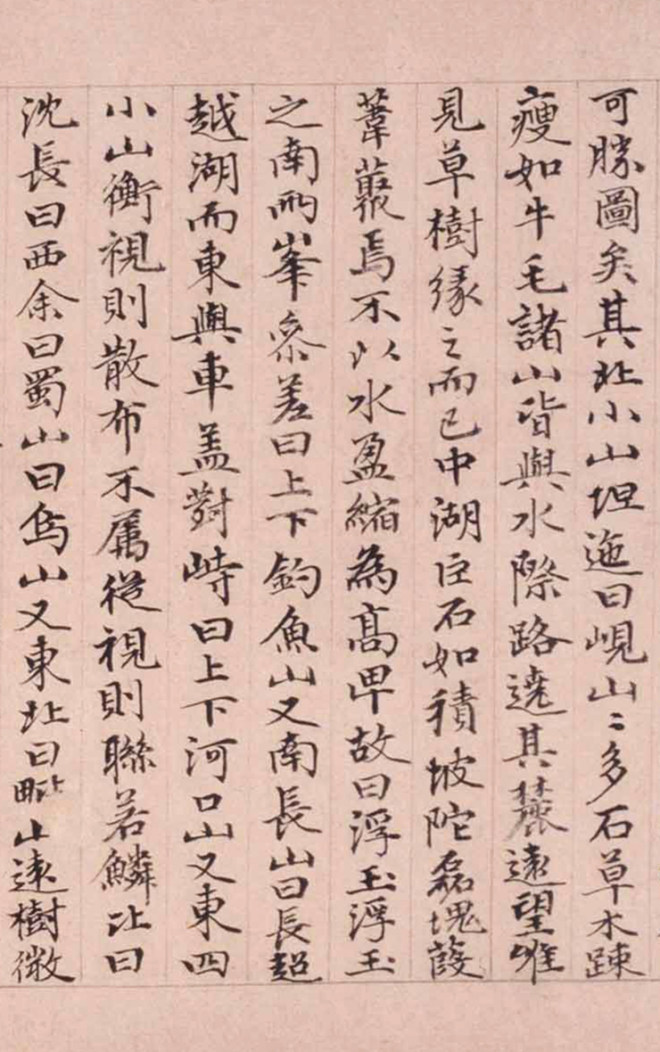 可勝圖矣其北小山坦迤曰峴山〻多石草木踈
瘦如牛毛諸山皆與水際路遶其麓遠望唯
見草樹緣之而已中湖巨石如積坡陀磊塊葭
葦藂焉不以水盈縮為高卑故曰浮玉浮玉
之南兩峯參差曰上下釣魚山又南長山曰長超
越湖而東與車盖對峙曰上下河口山又東四
小山衡視則散布不屬從視則聯若鱗比曰
沈長曰西余曰蜀山曰烏山又東北曰毗山遠樹微